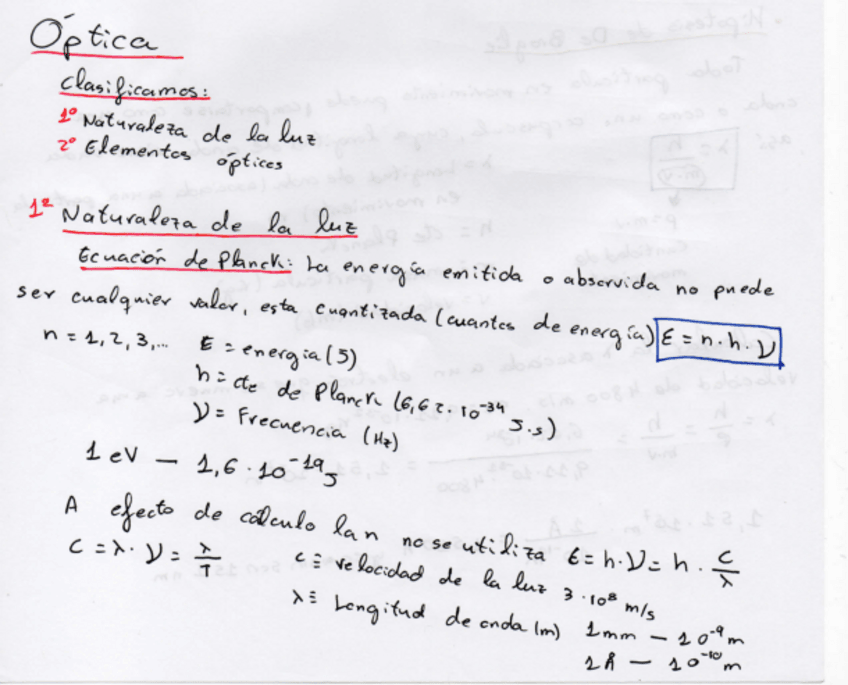 Óptica
Clasificamos:
1º Naturaleza de la luz
2º Elementos ópticos
1º Naturaleza de la luz
Ecuación de Planck: La energía emitida o absorvida no puede
ser cualquier valor, esta cuantizada (cuantos de energía) E = n · h · ν
n = 1, 2, 3,... E = energía (J)
h = cte de Planck (6,62 · 10⁻³⁴ J·s)
ν = Frecuencia (Hz)
1 eV — 1,6 · 10⁻¹⁹ J
A efecto de cálculo la n no se utiliza E = h · ν = h · c/λ
C = λ · ν = λ/T c ≡ velocidad de la luz 3 · 10⁸ m/s
λ ≡ Longitud de onda (m) 1mm — 10⁻⁹ m
1Å — 10⁻¹⁰ m